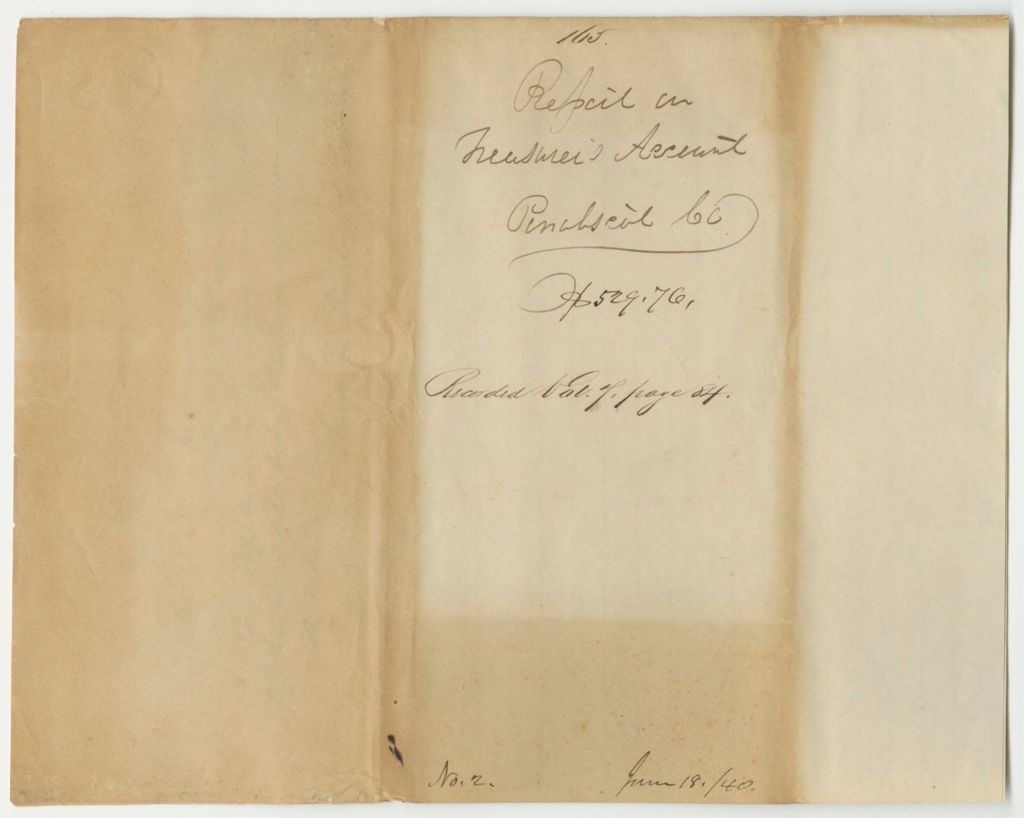 165.
Report on
Treasurer's Account
Penobscot Co
$529.76.
Recorded Vol. 7, page 84.
No. 2.
June 18./40.